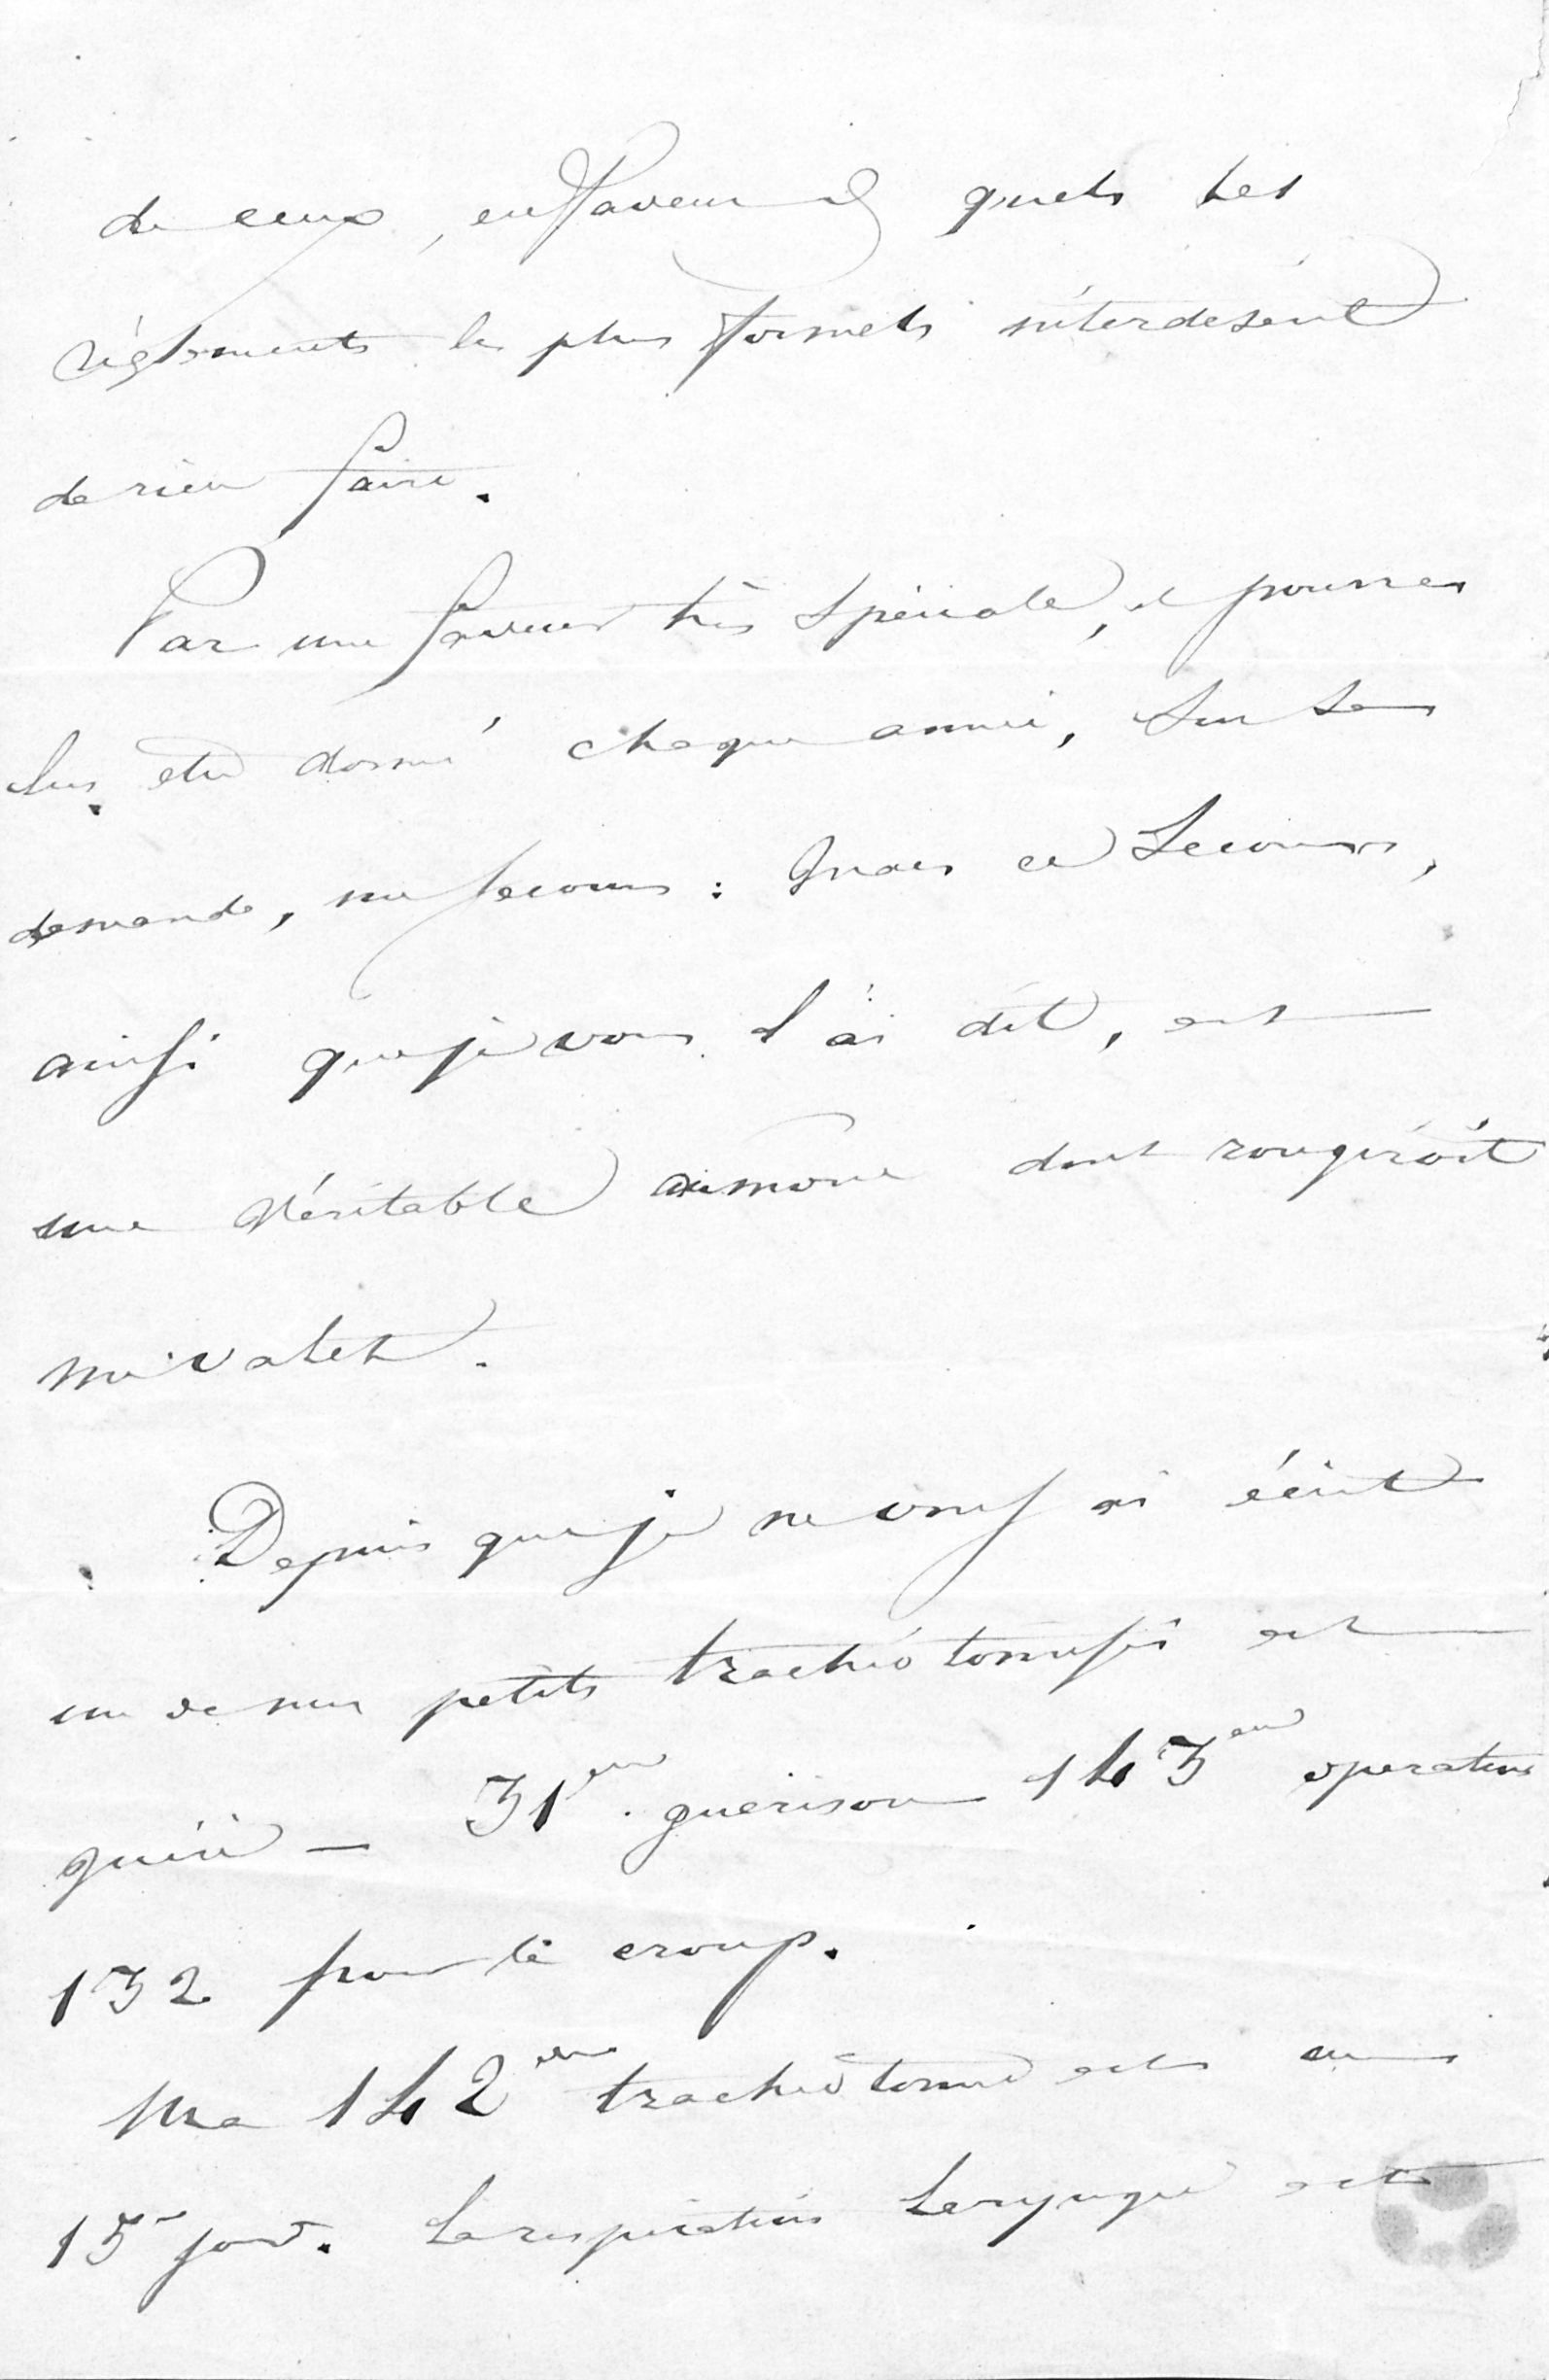 de ceux, en faveur desquels les
règlements les plus formels interdisent
de rien faire.
Par une faveur très spéciale, il pourra
lui être donné chaque année, sur sa
demande, un secours : Mais ce secours,
ainsi que je vous l'ai dit, est
une véritable aumône dont rougiroit
mon valet.
Depuis que je ne vous ai écrit
un de mes petits trachéotomisés est
guéri — 31eme guerison 143eme operation
132 pour le croup.
Ma 142eme trachéotomie est au
15e jour. La respiration laryngée est